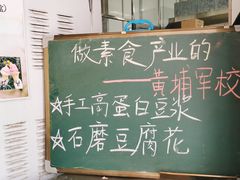 做素食产业的
——黄埔军校
☆手工高蛋白豆浆
☆石磨豆腐花